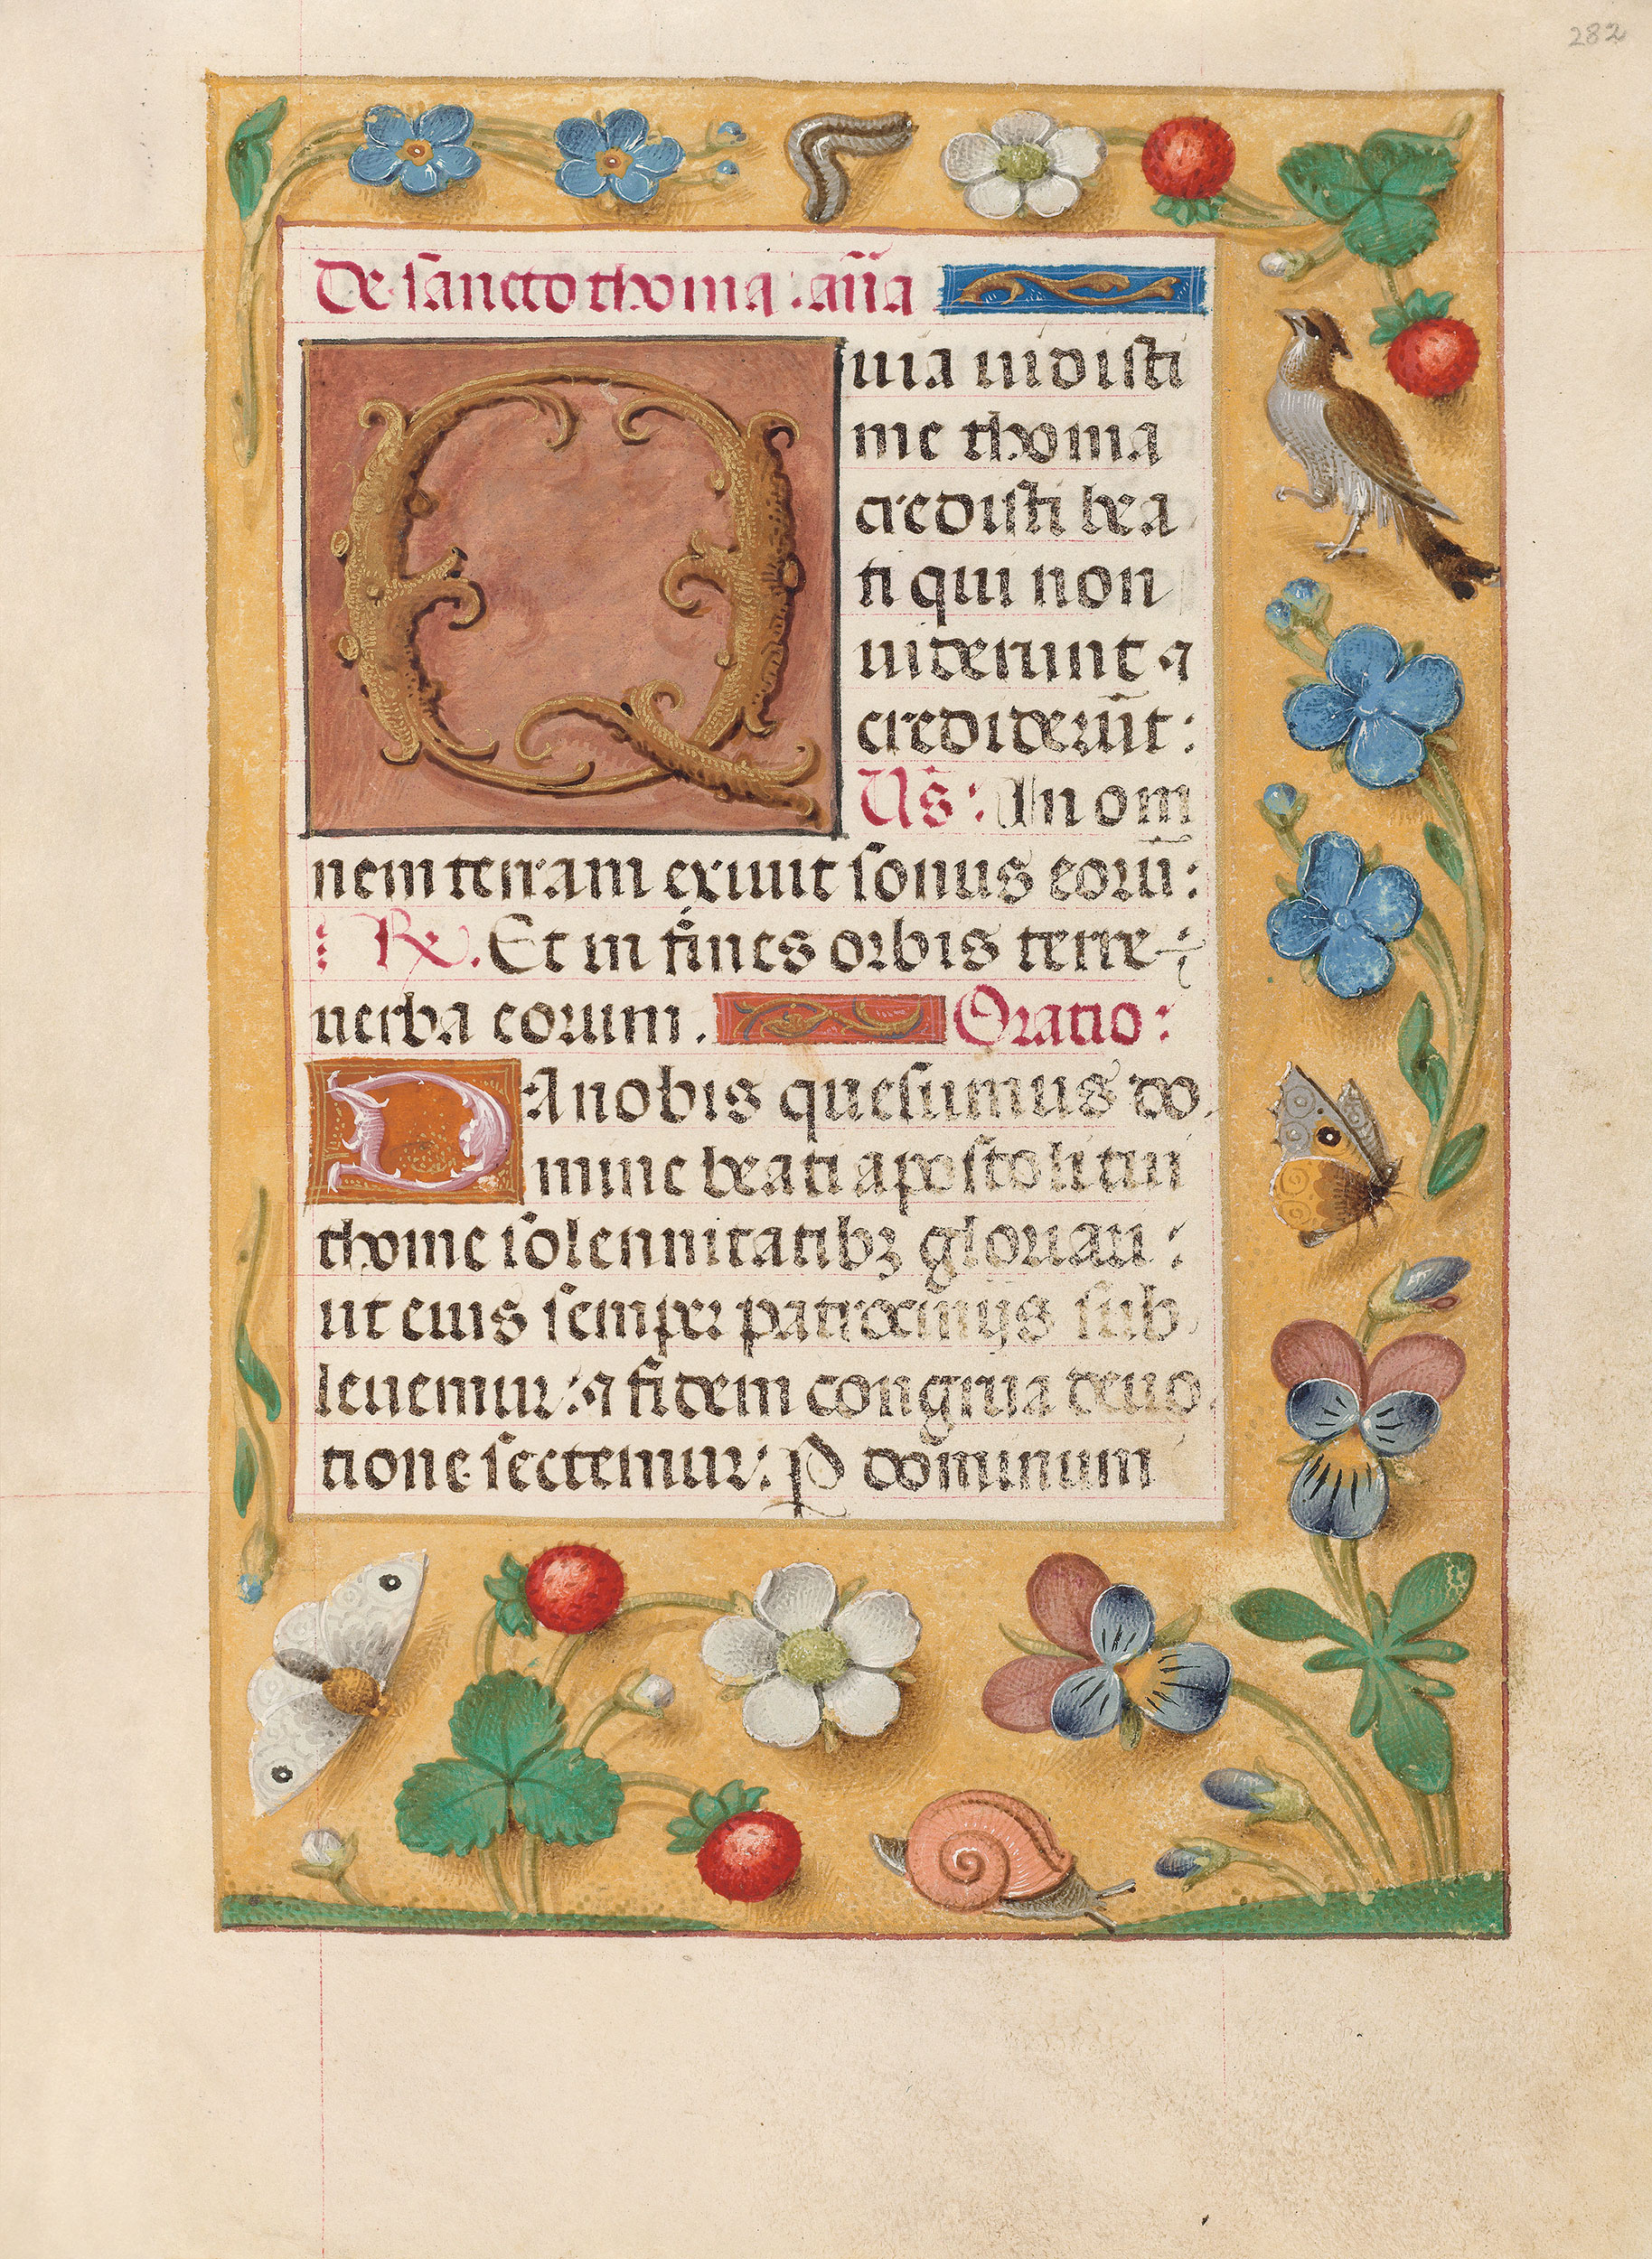 282
De sancto thoma : an̄a
Quia uidisti
me thoma
credisti bea
ti qui non
uiderunt ⁊
crediderūt :
Vs̄ : In om
nem terram exiuit sonus eorū :
℟. Et in fines orbis terre
uerba eorum . Oratio :
DA nobis quesumus do
mine beati apostoli tui
thome solennitatibꝫ gloriari :
ut eius semper patrocinijs sub
leuemur : ⁊ fidem congrua deuo
tione sectemur : P dominum